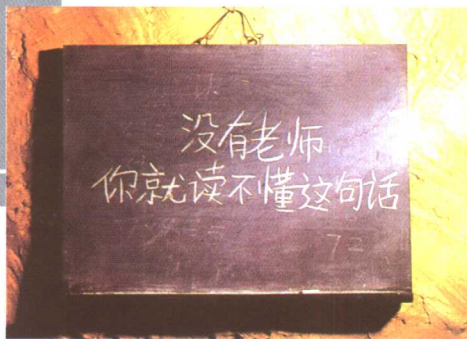 没有老师
你就读不懂这句话
72